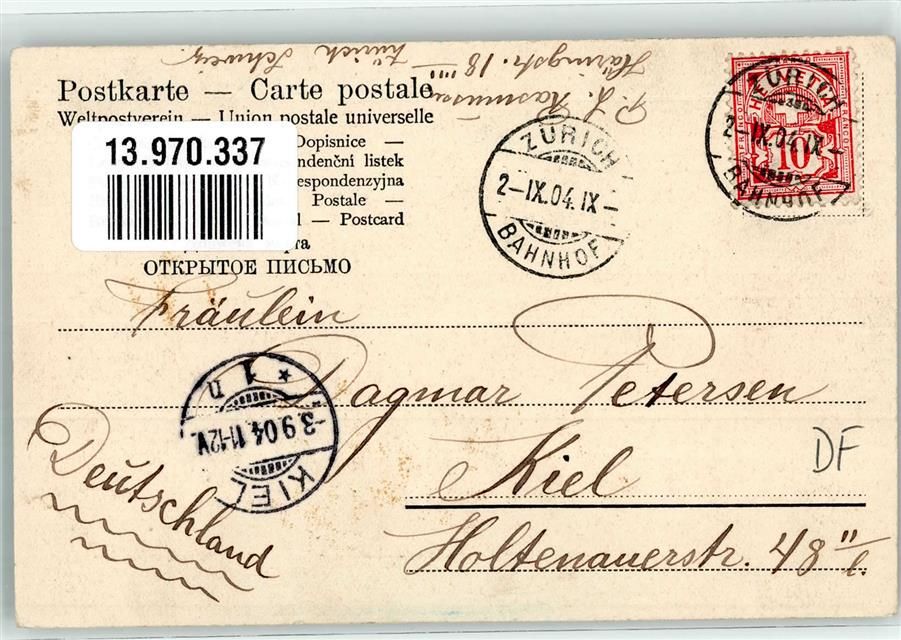 P. L. Rasmussen
Häringstr. 18 III
Zürich Schweiz
Postkarte — Carte postale
Weltpostverein — Union postale universelle
13.970.337
Dopisnice —
ndenční listek
espondenzyjna
Postale —
l — Postcard
рта
ОТКРЫТОЕ ПИСЬМО
ZÜRICH
2–IX.04.IX–
BAHNHOF
HELVETIA
10
ZÜRICH
2–IX.04.IX–
BAHNHOF
Fräulein
Dagmar Petersen
Kiel
Holtenauerstr. 48 II l.
Deutschland
KIEL
3.9.04.11-12V.
* 1 n
DF